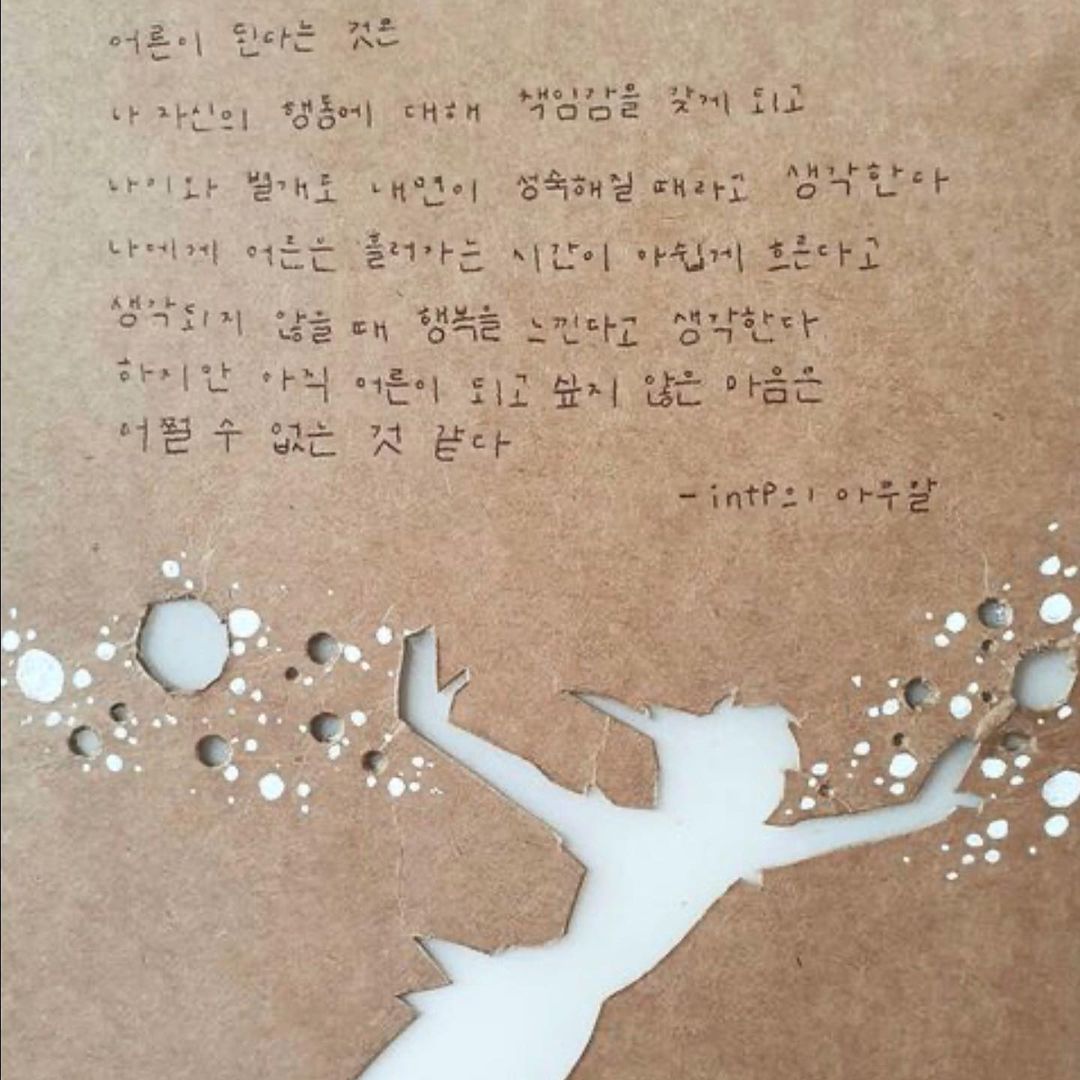 어른이 된다는 것은
나 자신의 행동에 대해 책임감을 갖게 되고
나이와 별개도 내면이 성숙해질 때라고 생각한다
나에게 어른은 흘러가는 시간이 아쉽게 흐른다고
생각되지 않을 때 행복을 느낀다고 생각한다
하지만 아직 어른이 되고 싶지 않은 마음은
어쩔 수 없는 것 같다
- intP의 아무말